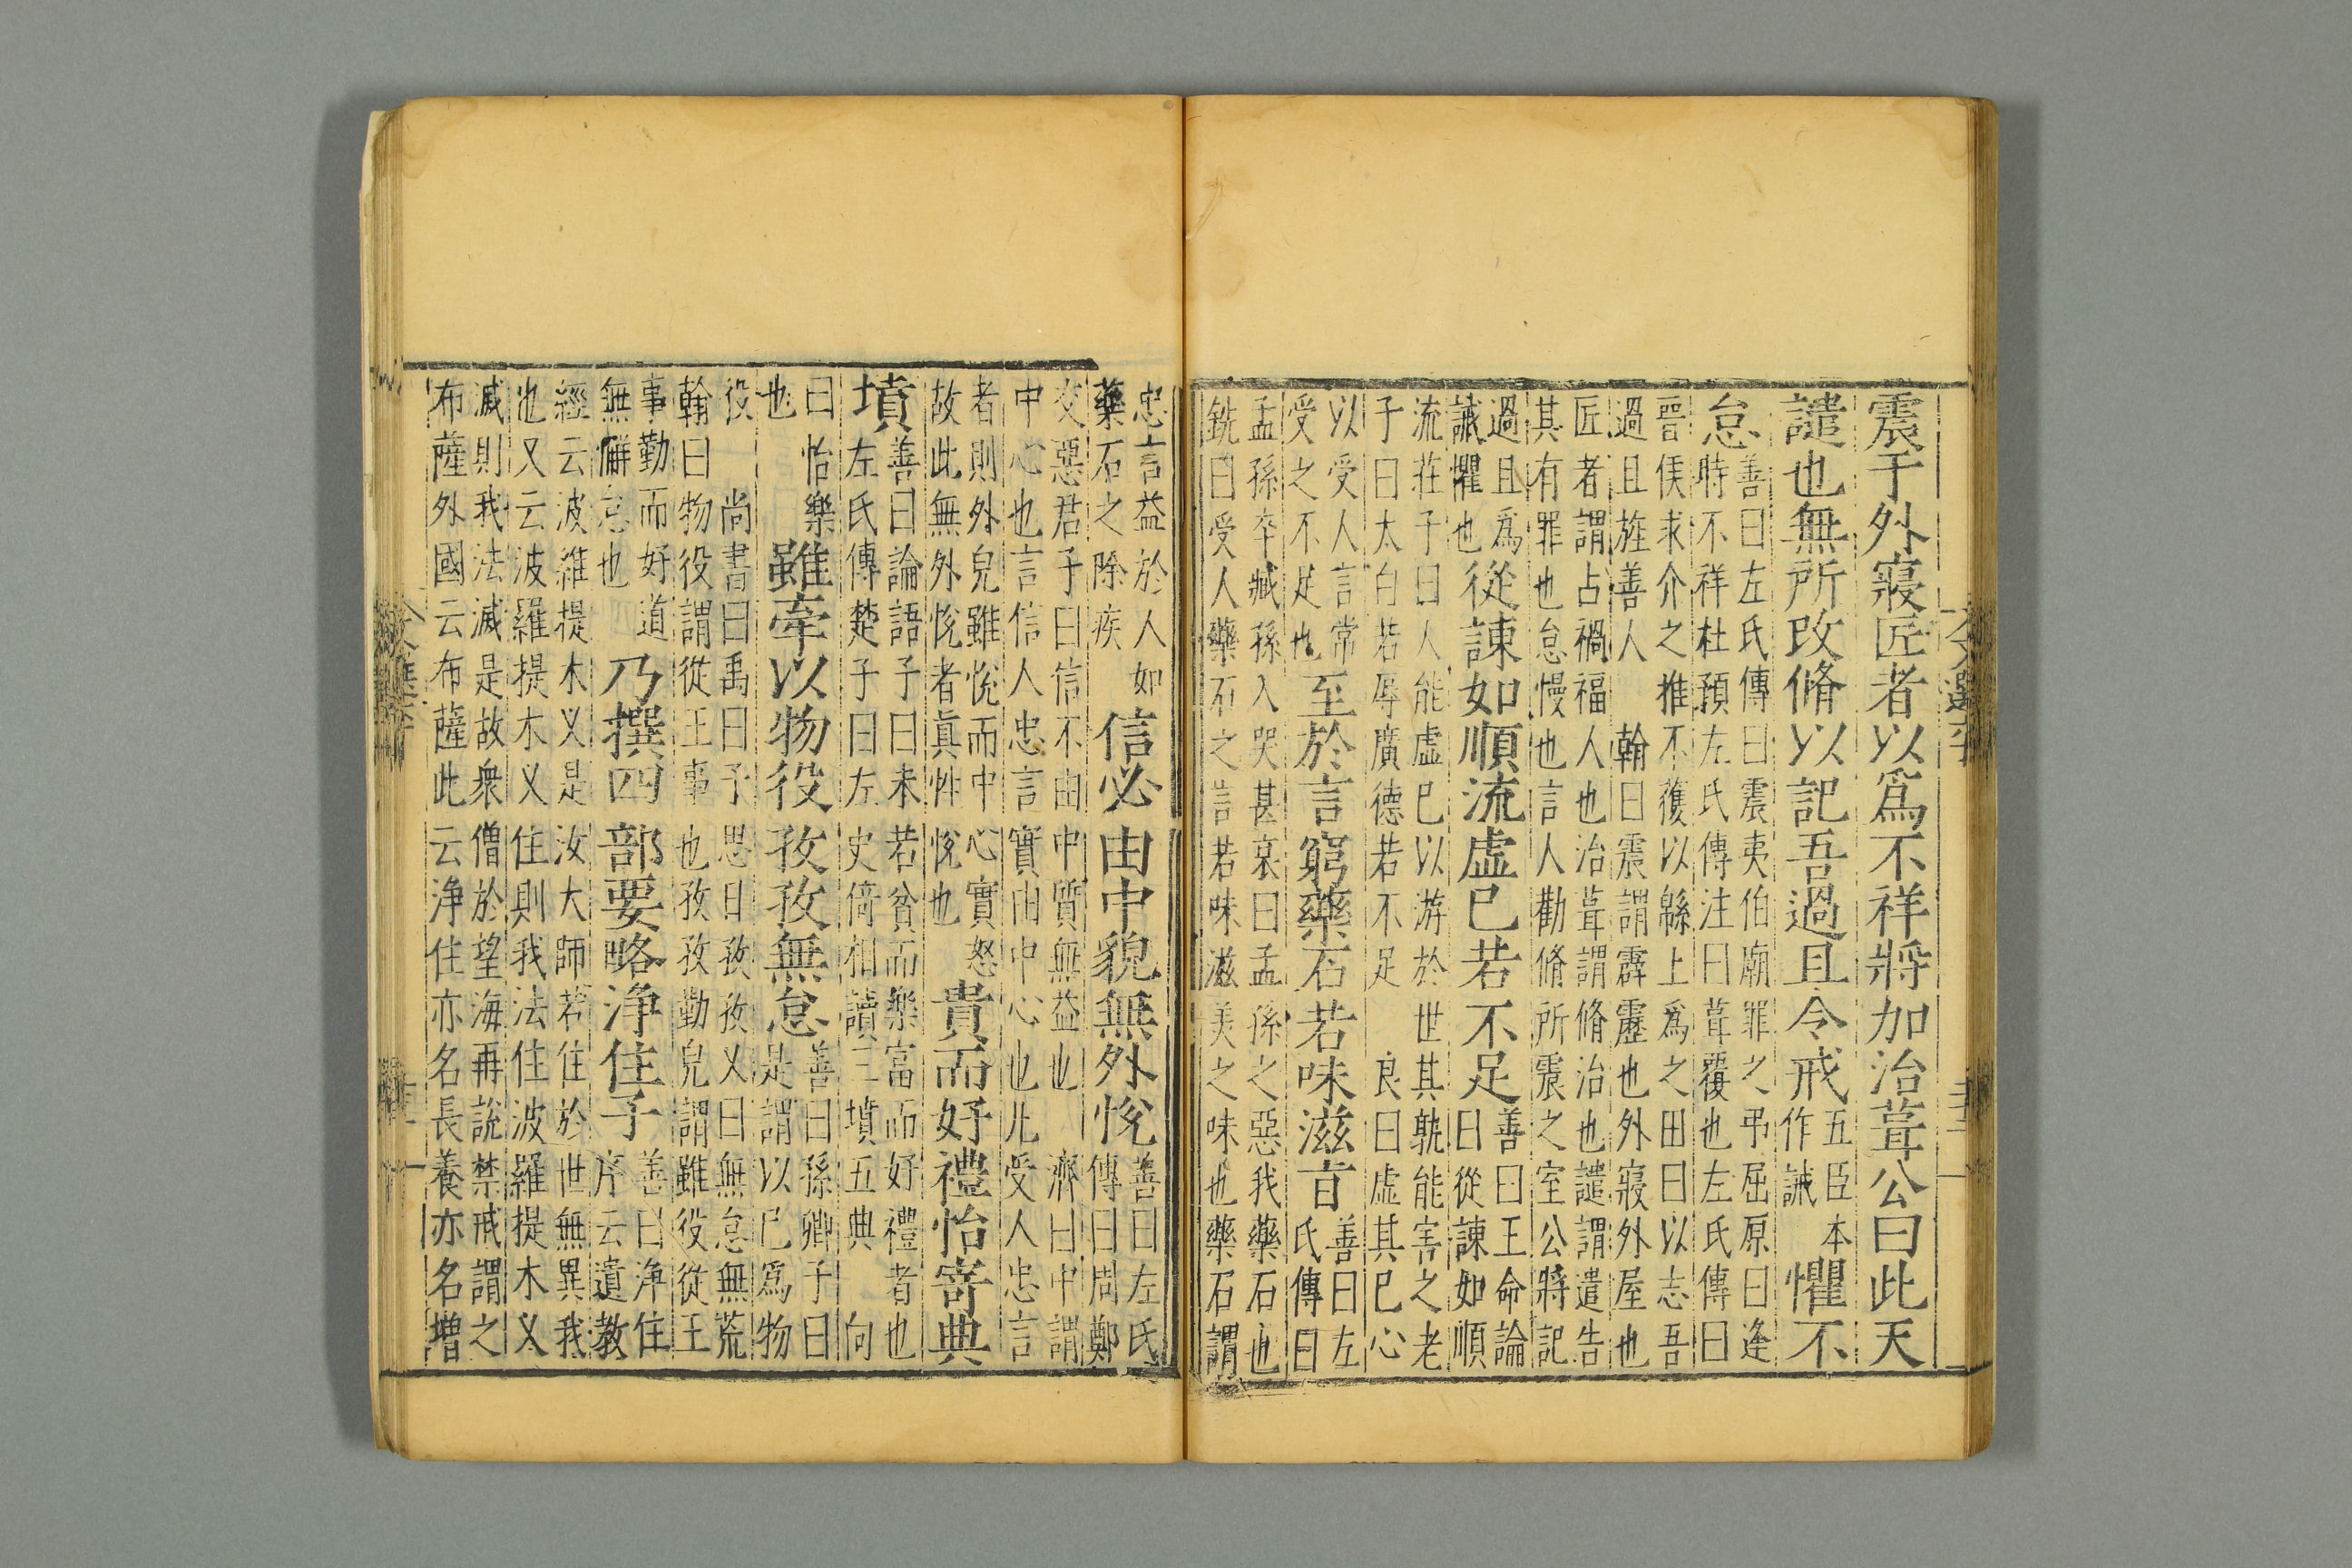 震于外寢匠者以爲不祥將加治葺公曰此天
譴也無所改脩以記吾過且令戒五臣本作誡懼不
怠善曰左氏傳曰震夷伯廟罪之弔屈原曰逢
時不祥杜預左氏傳注曰葺覆也左氏傳曰
晉侯求介之推不獲以緜上爲之田曰以志吾
過且旌善人翰曰震謂霹靂也外寢外屋也
匠者謂占禍福人也治葺謂脩治也譴謂遣告
其有罪也怠慢也言人勸脩所震之室公將記
過且爲
誡懼也從諫如順流虛已若不足善曰王命論
曰從諫如順
流莊子曰人能虛已以游於世其孰能害之老
子曰太白若辱廣德若不足良曰虛其已心
以受人言常
受之不足也至於言窮藥石若味滋㫖善曰左
氏傳曰
孟孫卒臧孫入哭甚哀曰孟孫之惡我藥石也
銑曰受人藥石之言若味滋美之味也藥石謂
忠言益於人如
藥石之除疾信必由中貌無外悅善曰左氏
傳曰周鄭
交惡君子曰信不由中質無益也濟曰中謂
中心也言信人忠言實由中心也凡受人忠言
者則外皃雖悅而中心實怒
故此無外悅者真性悅也貴而好禮怡寄典
墳善曰論語子曰未若貧而樂富而好禮者也
左氏傳楚子曰左史倚相讀三墳五典向
曰怡樂
也雖牽以物役孜孜無怠善曰孫卿子曰
是謂以已爲物
役尚書曰禹曰予思日孜孜又曰無怠無荒
翰曰物役謂從王事也孜孜勤皃謂雖役從王
事勤而好道
無懈怠也乃撰四部要略淨住子善曰淨住
序云遺教
經云波羅提木义是汝大師若住於世無異我
也又云波羅提木义住則我法住波羅提木义
滅則我法滅是故衆僧於望海再說禁戒謂之
布薩外國云布薩此云淨住亦名長養亦名增